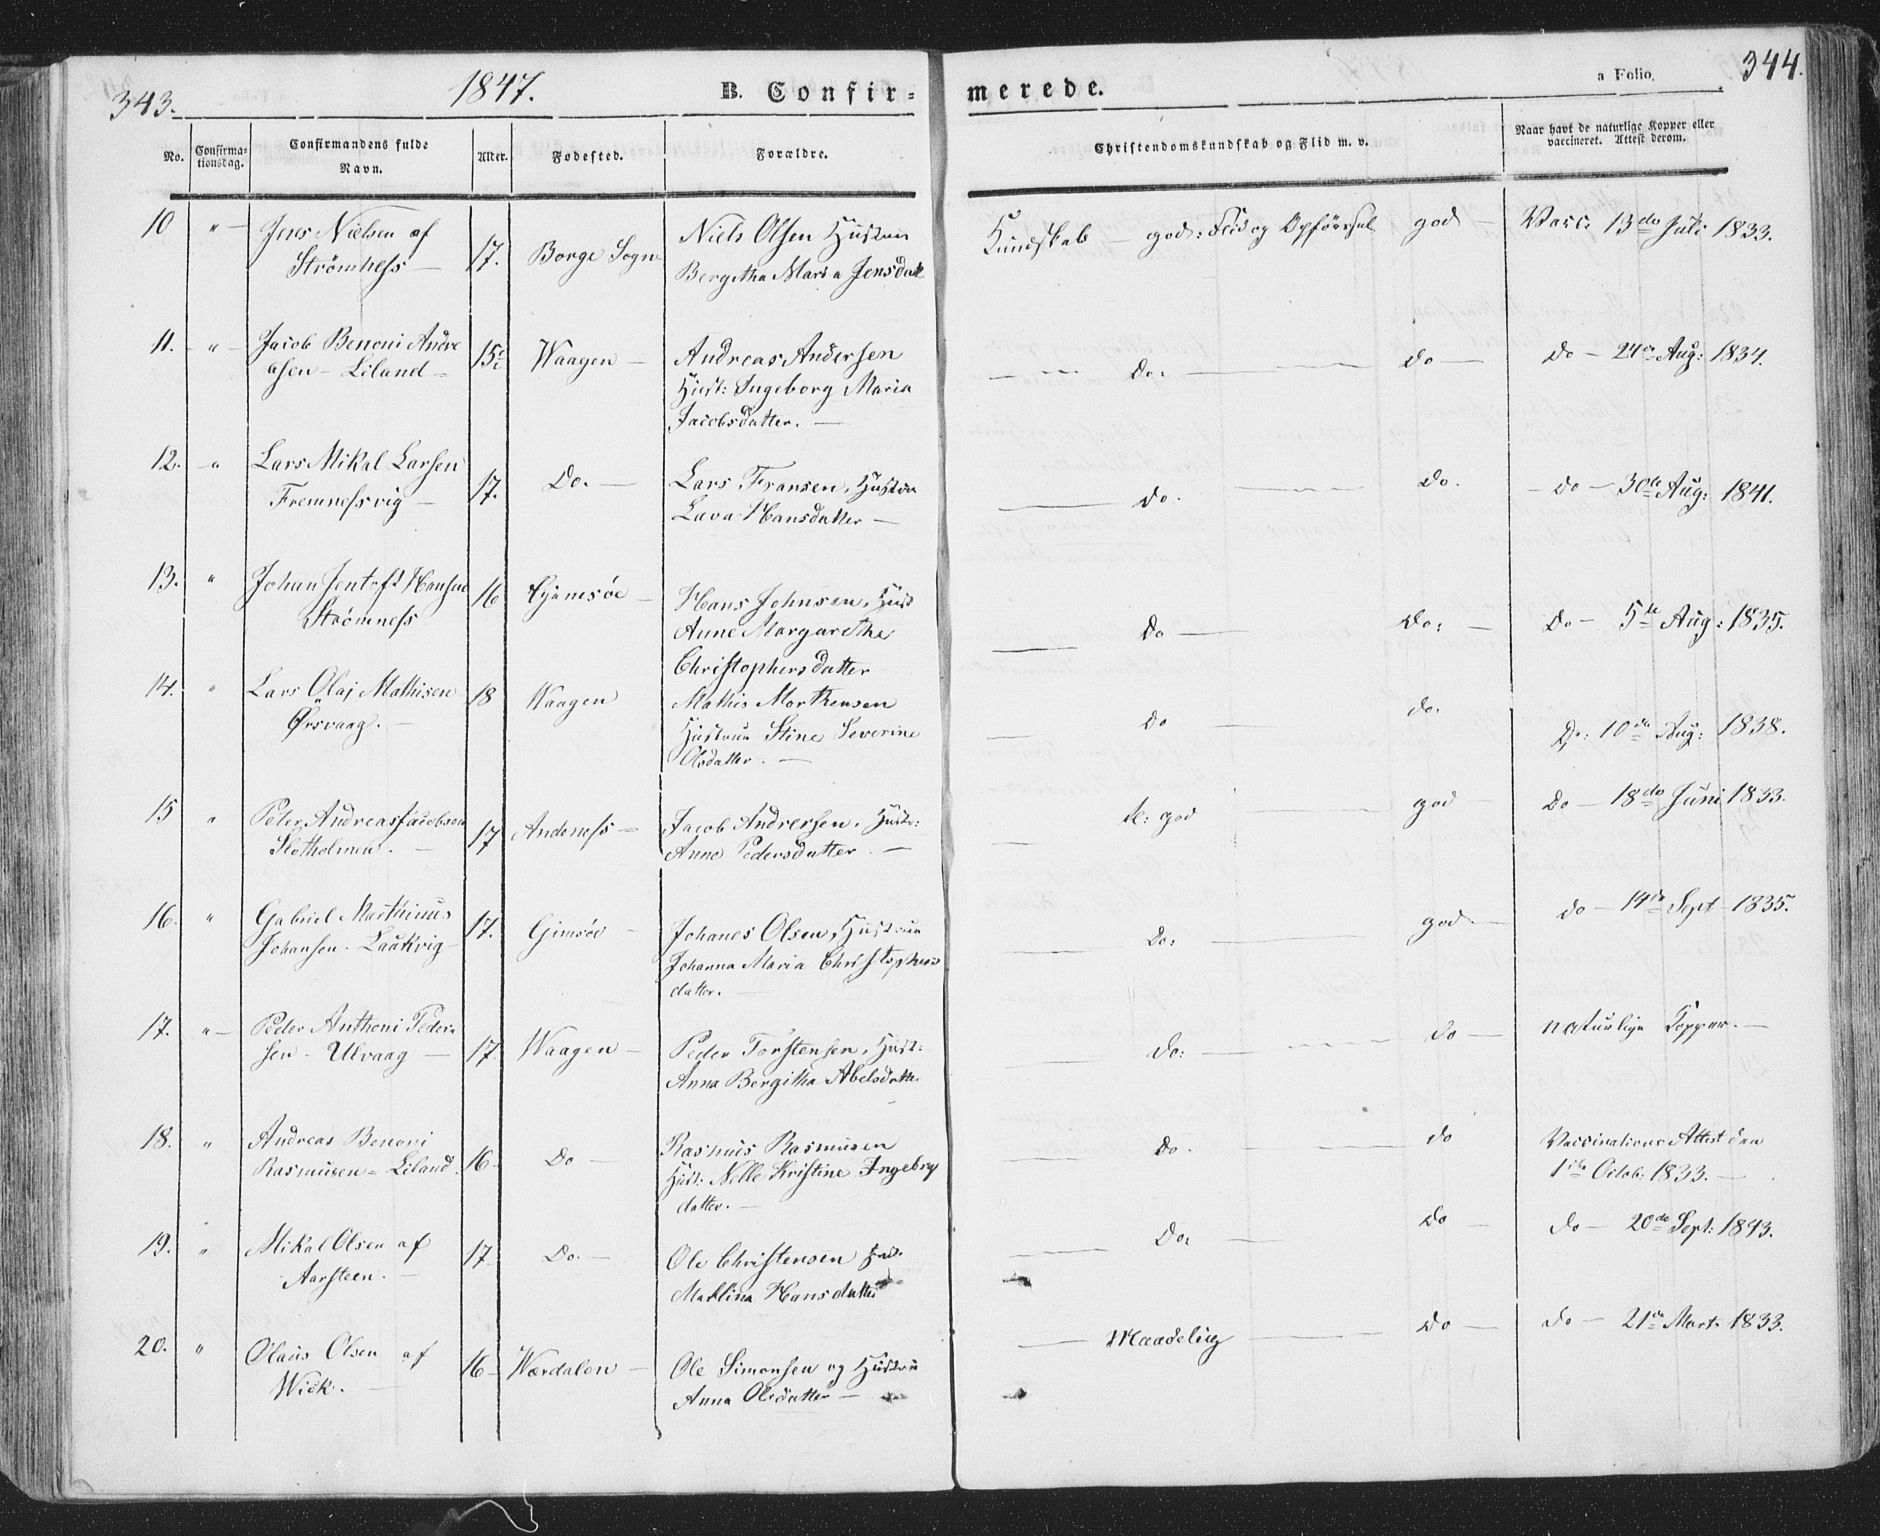 343.
1847.
B. Confir-
merede.
a Folio.
344.
No.
Confirma-
tionsdag.
Confirmandens fulde
Navn.
Alter.
Fodested.
Forældre.
Christendomskundskab og Flid m. v.
Naar havt de naturlige Kopper eller
vaccineret. Attest derom.
10 " Jens Nielsen af
Strømness 17. Borge Sogn
Niels Olsen Hustru
Bergitha Maria Jensdatt
Kundskab god: Flid og Opførsel god
Vacc: 13de Juli 1833.
11. " Jacob Benoni Andre
asen - Liland 15½ Waagen
Andreas Andersen
Hust: Ingeborg Maria
Jacobsdatter.
Do: Do Do 24de Aug: 1834.
12. " Lars Mikal Larsen
Fremnessvig 17. Do.
Lars Fransen, Hustru
Lava Hansdatter
Do. Do. Do 30de Aug: 1841.
13. " Johan Jentoft Hansen
Strømness 16 Gjemsøe
Hans Johnsen, Hust
Anne Margarethe
Christophersdatter
Do Do: Do 5te Aug: 1835.
14. " Lars Olai Mathisen
Ørsvaag. 18 Waagen
Mathis Morthensen
Hustrue Stine Severine
Olsdatter.
Do Do. Do: 10de Aug: 1838.
15 " Peter Andreas Jacobsen
Slotholmen. 17 Andeness
Jacob Andresen, Hustr:
Anne Pedersdatter.
K: god god Do 18de Juni 1833.
16. " Gabriel Marthinus
Johansen. Laukvig 17. Gimsøe
Johanes Olsen, Hustrue
Johanna Maria Christophers
datter.
Do: god Do 14de Sept 1835.
17. " Peder Anthoni Peder-
sen - Ulvaag 17. Waagen
Peder Torstensen, Hust:
Anna Bergitha Abelsdatte
Do: Do naturlige Kopper.
18. " Andreas Benoni
Rasmusen - Liland. 16 Do
Rasmus Rasmusen
Hust: Nelle Kristine Ingebrg
datter.
Do. Do Vaccinations Attest den
1ste Octob: 1833.
19. " Mikal Olsen af
Aarsteen. 17. Do.
Ole Christensen
Maklina Hansdatter
Do: Do Do 20de Sept: 1843.
20. " Olaus Olsen af
Wick. 16 Værdalen
Ole Simonsen og Hustru
Anna Olsdatter
Maadelig Do Do 21de Mart. 1833.